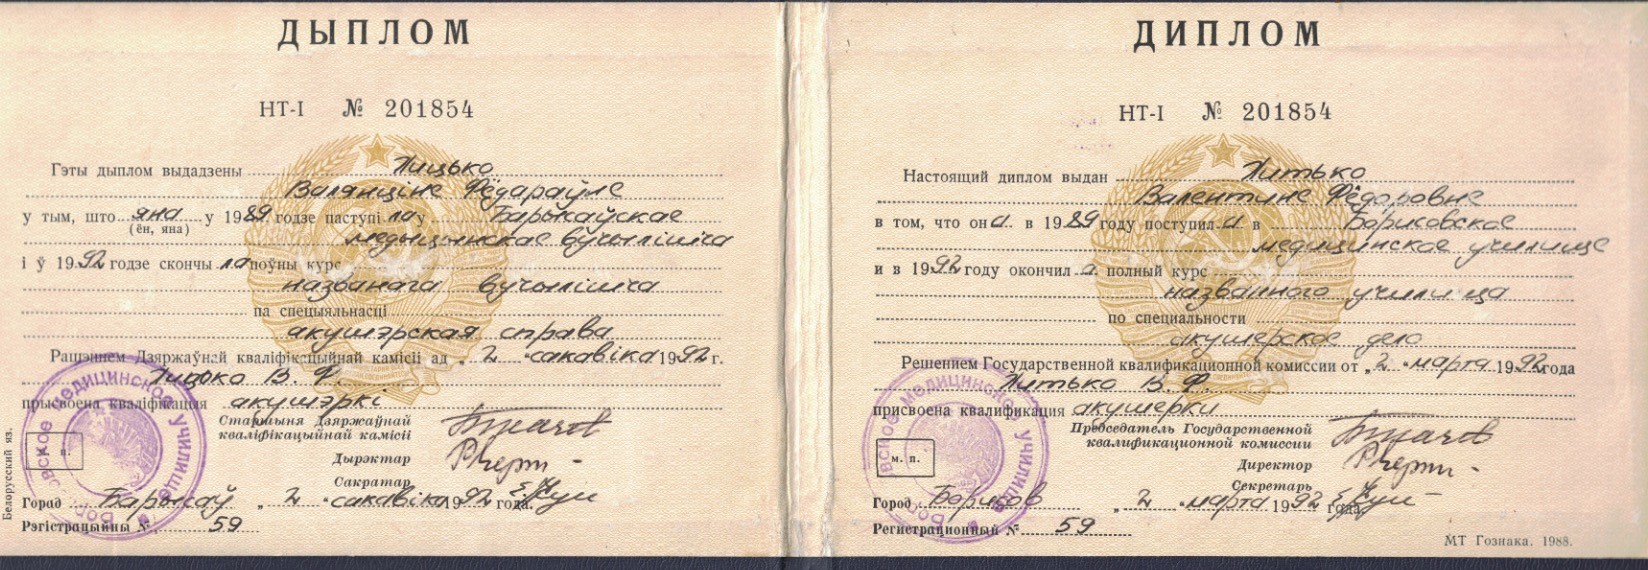 ДЫПЛОМ
НТ-I № 201854
Гэты дыплом выдадзены Ліцько
Валянціне Фёдараўне
у тым, што яна у 1989 годзе паступіла у Барысаўскае
(ён, яна)
медыцынскае вучылішча
і ў 1992 годзе скончыла поўны курс
названага вучылішча
па спецыяльнасці
акушэрская справа
Рашэннем Дзяржаўнай кваліфікацыйнай камісіі ад „2" сакавіка 1992 г.
Ліцько В. Ф.
прысвоена кваліфікацыя акушэркі
Старшыня Дзяржаўнай
кваліфікацыйнай камісіі
Дырэктар
Сакратар
Горад Барысаў „2" сакавіка 1992 года.
Рэгістрацыйны № 59
Белорусский яз.
м. п.
ДИПЛОМ
НТ-I № 201854
Настоящий диплом выдан Литько
Валентине Фёдоровне
в том, что она в 1989 году поступила в Борисовское
медицинское училище
и в 1992 году окончила полный курс
названного училища
по специальности
акушерское дело
Решением Государственной квалификационной комиссии от „2" марта 1992 года
Литько В. Ф.
присвоена квалификация акушерки
Председатель Государственной
квалификационной комиссии
Директор
Секретарь
м. п.
Город Борисов „2" марта 1992 года
Регистрационный № 59
МТ Гознака. 1988.